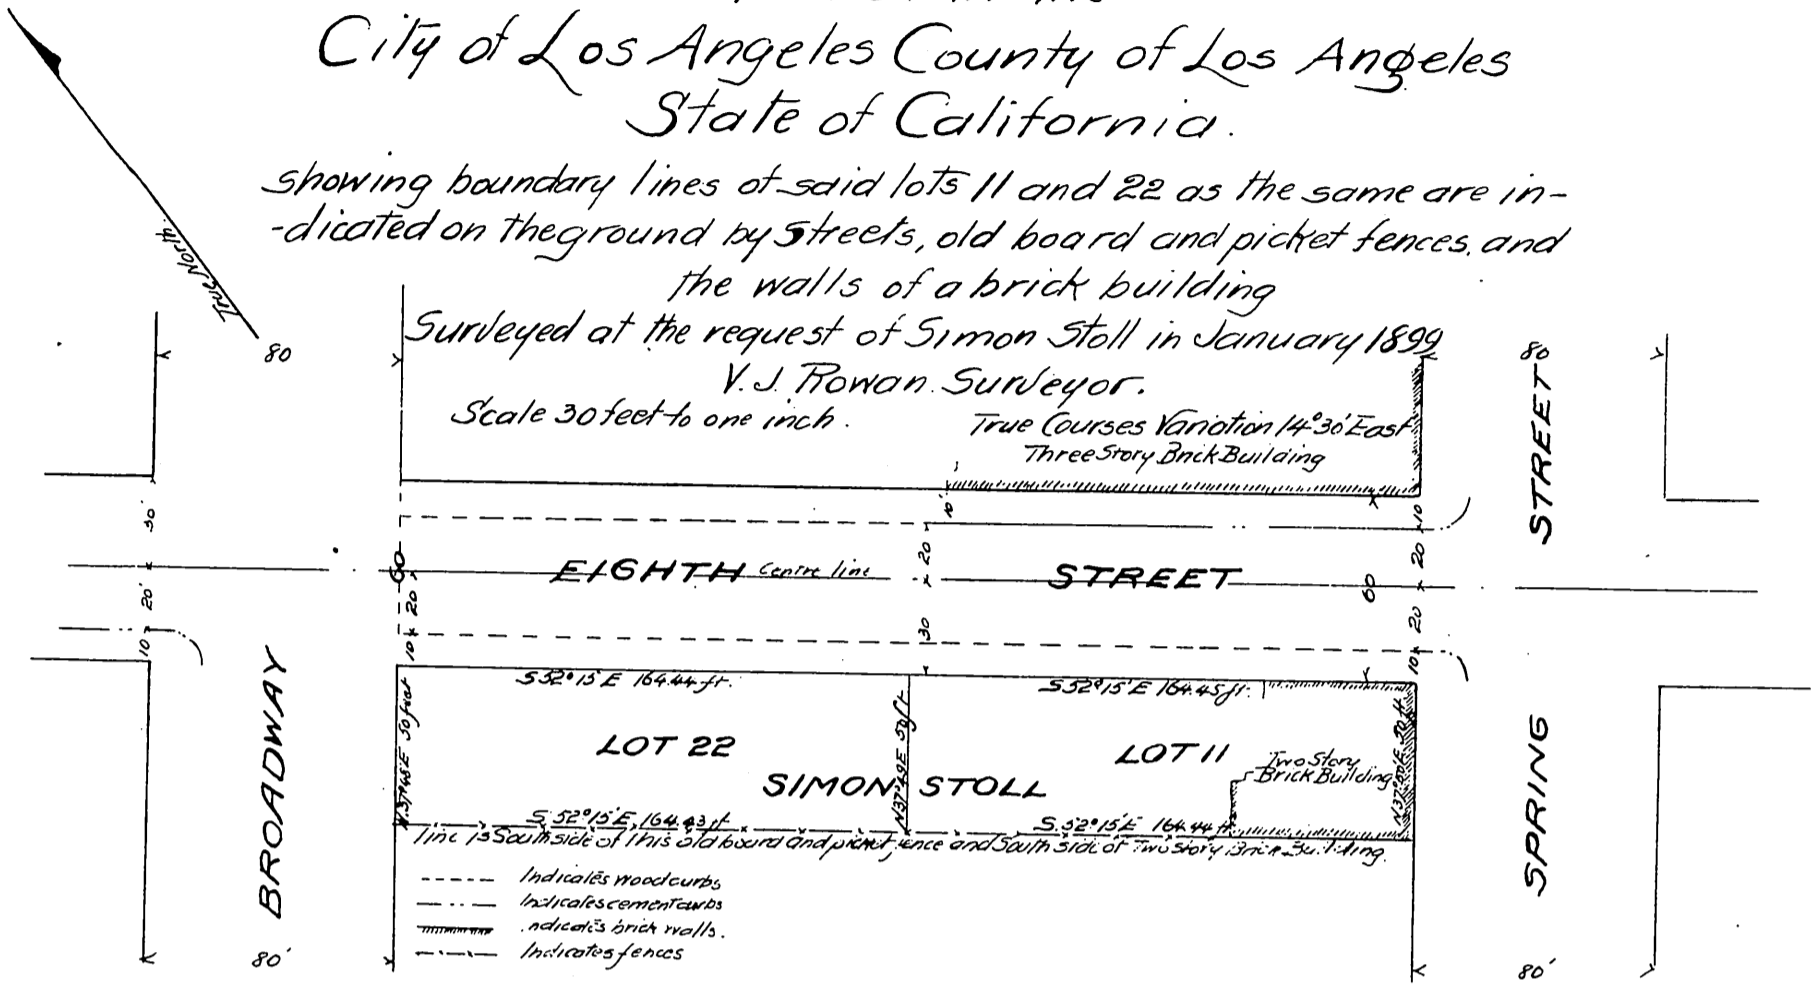 City of Los Angeles County of Los Angeles
State of California.
showing boundary lines of said lots 11 and 22 as the same are in-
-dicated on the ground by Streets, old board and picket fences, and
the walls of a brick building
Surveyed at the request of Simon Stoll in January 1899
V. J. Rowan. Surveyor.
Scale 30 feet to one inch.
True Courses Variation 14°30' East
Three Story Brick Building
True North.
80
80
STREET
30'
10'
10
20
20
EIGHTH Centre line STREET
60
60
20'
20
30
20
10
10
10
S 52°15' E 164.44 ft.
S 52°15' E 164.45 ft.
N 37°48' E 50 feet
N 37°49' E 50 ft
LOT 22
LOT 11
Two Story
Brick Building
SIMON STOLL
S. 52°15' E. 164.43 ft
S. 52°15' E 164.44 ft
line is South side of this old board and picket fence and South side of Two Story Brick Building.
BROADWAY
SPRING
Indicates wood curbs
Indicates cement curbs
ndicates brick walls.
Indicates fences
80'
80'